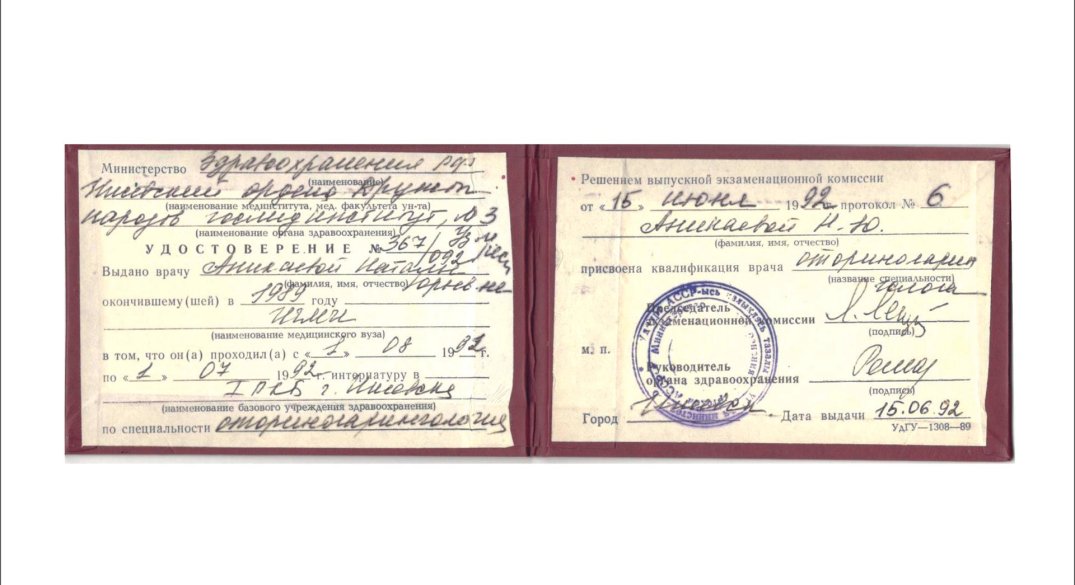 Министерство Здравоохранения РФ
(наименование)
Ижевский ордена Дружбы
(наименование мединститута, мед. факультета ун-та)
народов госмединститут,
(наименование органа здравоохранения)
УДОСТОВЕРЕНИЕ № 367/
Выдано врачу Аникаевой Наталии
(фамилия, имя, отчество) Юрьевне
окончившему (шей) в 1989 году
ИГМИ
(наименование медицинского вуза)
в том, что он(а) проходил(а) с «1» 08 1992 г.
по «1» 07 1992 г. интернатуру в
I РКБ г. Ижевска
(наименование базового учреждения здравоохранения)
по специальности оториноларингология
Решением выпускной экзаменационной комиссии
от «15» июня 1992 г. протокол № 6
Аникаевой Н. Ю.
(фамилия, имя, отчество)
присвоена квалификация врача оториноларин
(название специальности)
голога
Председатель
экзаменационной комиссии
(подпись)
м. п.
Руководитель
органа здравоохранения
(подпись)
Город Дата выдачи 15.06.92
УдГУ—1308—89